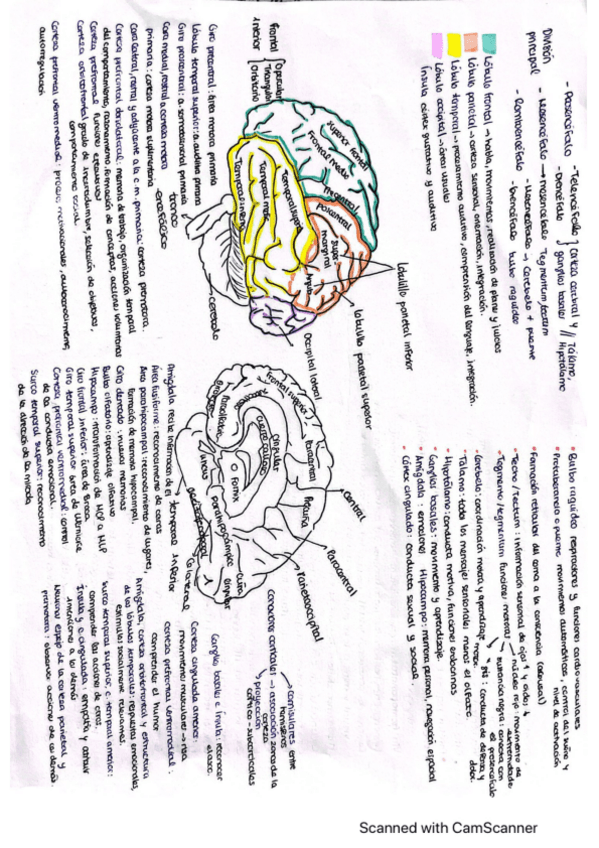 División principal
- Prosencéfalo
- Telencéfalo { Corteza cerebral y ganglios basales
- Diencéfalo // Tálamo, Hipotálamo
- Mesencéfalo → mesencéfalo Tegmentum, tectum
- Rombencéfalo
→ Cerebelo + puente
bulbo raquídeo
Lóbulo frontal → habla, movimientos, realización de planes y juicios
Lóbulo parietal → corteza sensorial, orientación, integración.
Lóbulo temporal → procesamiento auditivo, comprensión del lenguaje, integración.
Lóbulo occipital → áreas visuales
Ínsula córtex gustativo y auditivo
• Bulbo raquídeo respiraciones y funciones cardio-vasculares
• Protuberancia o puente: movimientos automáticos, control del sueño y nivel de activación
• Formación reticular: del coma a la consciencia (arousal)
• Tecno/tectum: información sensorial de ojos y oídos
• Tegmento/tegmentum funciones motoras
núcleo rojo: movimiento de extremidades
sustancia negra: conecta con el prosencéfalo
conducta de defensa y dolor.
• Cerebelo: coordinación motora y aprendizaje motor.
• Tálamo: todos los mensajes sensoriales menos el olfato.
• Hipotálamo: conducta motiva, funciones endocrinas
• Ganglios basales: movimiento y aprendizaje
• Amígdala: emociones Hipocampo: memoria personal, navegación espacial
• Córtex cingulado: conducta sexual y social.
Lobulillo parietal inferior
lobulillo parietal superior
superior frontal
Frontal medio
F.inferior
Parcentral
supramarginal
Temporal superior
Temporal medio
Temporal inferior
Occipital lateral
cerebelo
tronco encefálico
Frontal inferior { Opercular
Triangular
Orbitario
Giro precentral: área motora primaria
Lóbulo temporal superior: a. auditiva primaria
Giro postcentral: a. somatosensorial primaria
Cara medial, rostral a corteza motora
primaria: corteza motora suplementaria
Cara lateral, rostral y adyacente a la c. m. primaria: corteza premotora.
Corteza prefrontal dorsolateral: memoria de trabajo, organización temporal
del comportamiento, razonamiento, formación de conceptos, acciones voluntarias
Corteza prefrontal: funciones ejecutivas
Corteza orbitofrontal: grado de incertidumbre, selección de objetivos,
comportamiento sexual.
Corteza prefrontal ventromedial: proceso motivacionales, autoconocimiento,
autorregulación.
Frontal superior
Paracentral
Precuña
Cingular
Cuerpo calloso
Fornix
Parahipocámpico
Uncus
Cuña
lingular
Central
Paracentral
Parietooccipital
Colateral
temporal inferior
Amígdala recibe información del
Área fusiforme: reconocimiento de caras
Área parahipocampal: reconocimiento de lugares,
formación de memoria hipocampal.
Giro dentado: nuevas memorias
Bulbo olfatorio: aprendizaje olfativo
Hipocampo: transformación de MCP a MLP
Giro frontal inferior: área de Broca
Giro temporal superior: área de Wernicke
Corteza prefrontal ventromedial: control
de la conducta emocional.
Surco temporal superior: reconocimiento
de la dirección de la mirada.
conexiones corticales
→ comisurales entre hemisferios
→ asociación zonas de la corteza
→ proyección cortico-subcorticales
Ganglio basales e ínsula: reconocer el asco.
Corteza cingulada anterior:
movimiento muscular → risa
Corteza prefrontal ventromedial:
comprende el humor
Amígdala, corteza orbitofrontal y estructura
de los lóbulos temporales: respuestas emocionales,
estímulos socialmente relevantes.
Surco temporal superior, c. temporal anterior:
comprender las acciones de otros.
Ínsula y c. cingulada: empatía y atribuir
emociones a los demás
Neuronas espejo de la corteza parietal y
premotora: observar acciones de los demás.
Scanned with CamScanner